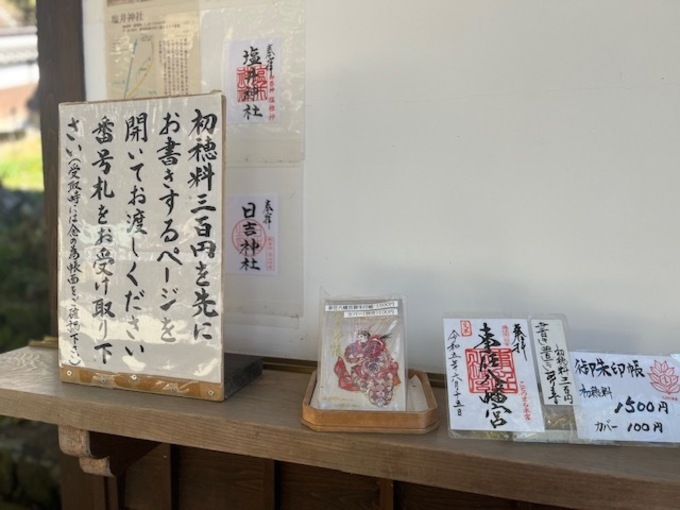 初穂料三百円を先に
お書きするページを
開いてお渡しください
番号札をお受け取り下
さい(受取時には念の為帳面をご確認下さい)
塩井神社
奉拝
塩井神社
奉拝
日吉神社
奉拝
八幡宮
令和五年
書き置き
初穂料三百円
御朱印帳
初穂料
1500円
カバー 100円